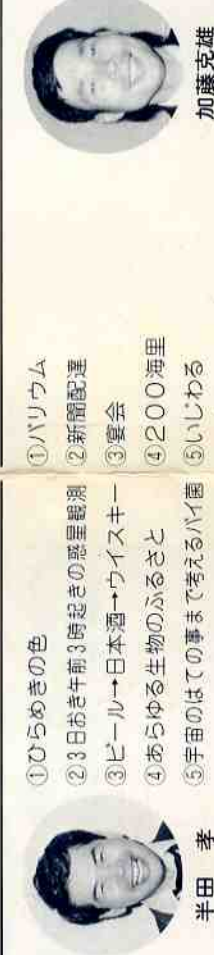 半田 孝
①ひらめきの色
②3日おき午前3時起きの惑星観測
③ビール→日本酒→ウイスキー
④あらゆる生物のふるさと
⑤宇宙のはての事まで考えるバイ菌
加藤克雄
①バリウム
②新聞配達
③宴会
④200海里
⑤いじわる